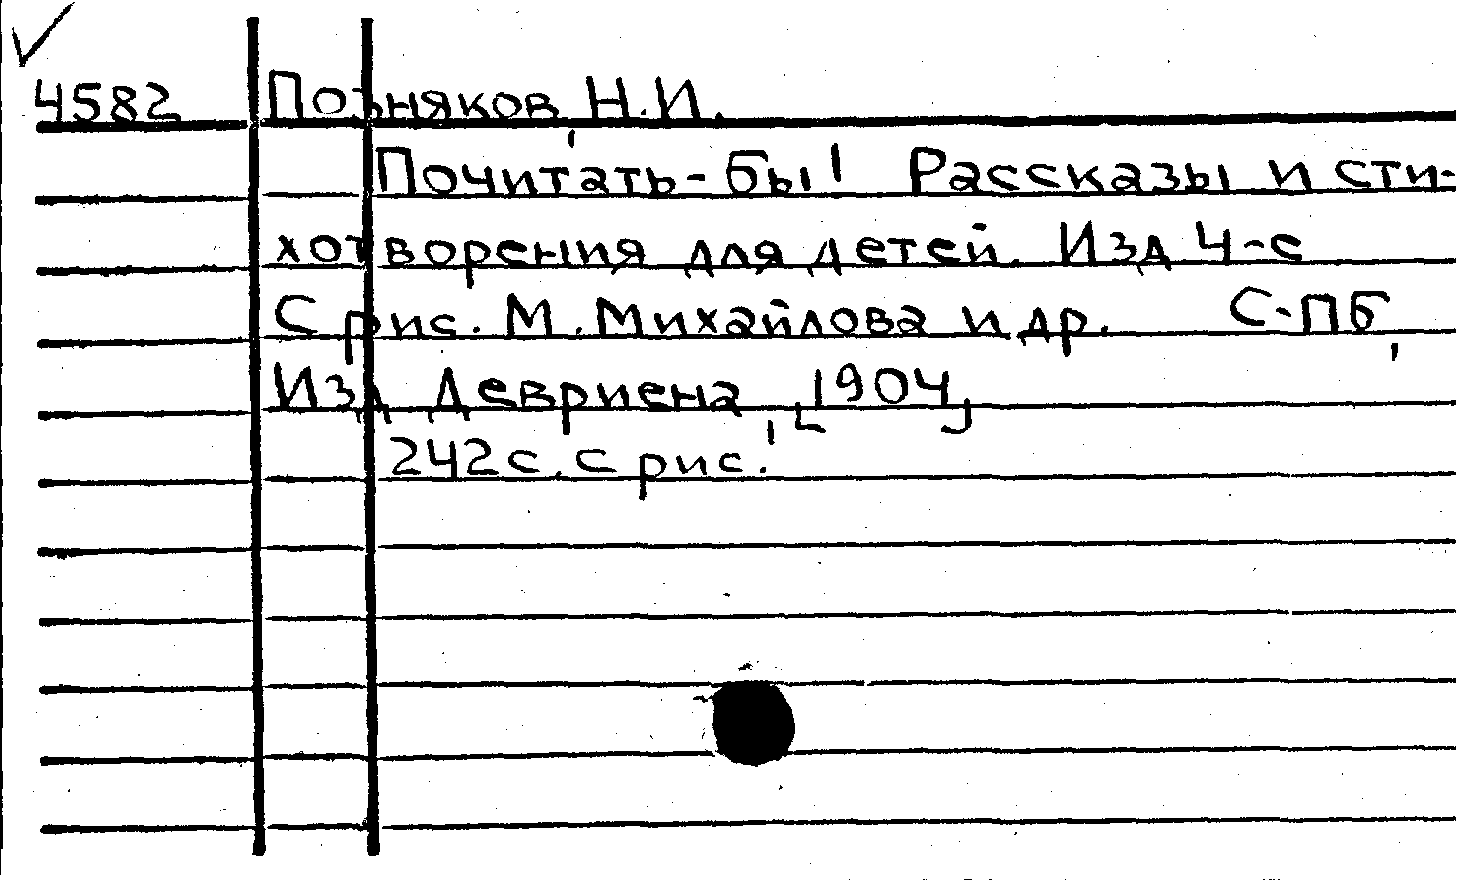 4582 Позняков, Н.И.
Почитать-бы! Рассказы и сти-
хотворения для детей. Изд 4-е
С рис. М. Михайлова и др. С-ПБ,
Изд Девриена, [1904]
242с. с рис.